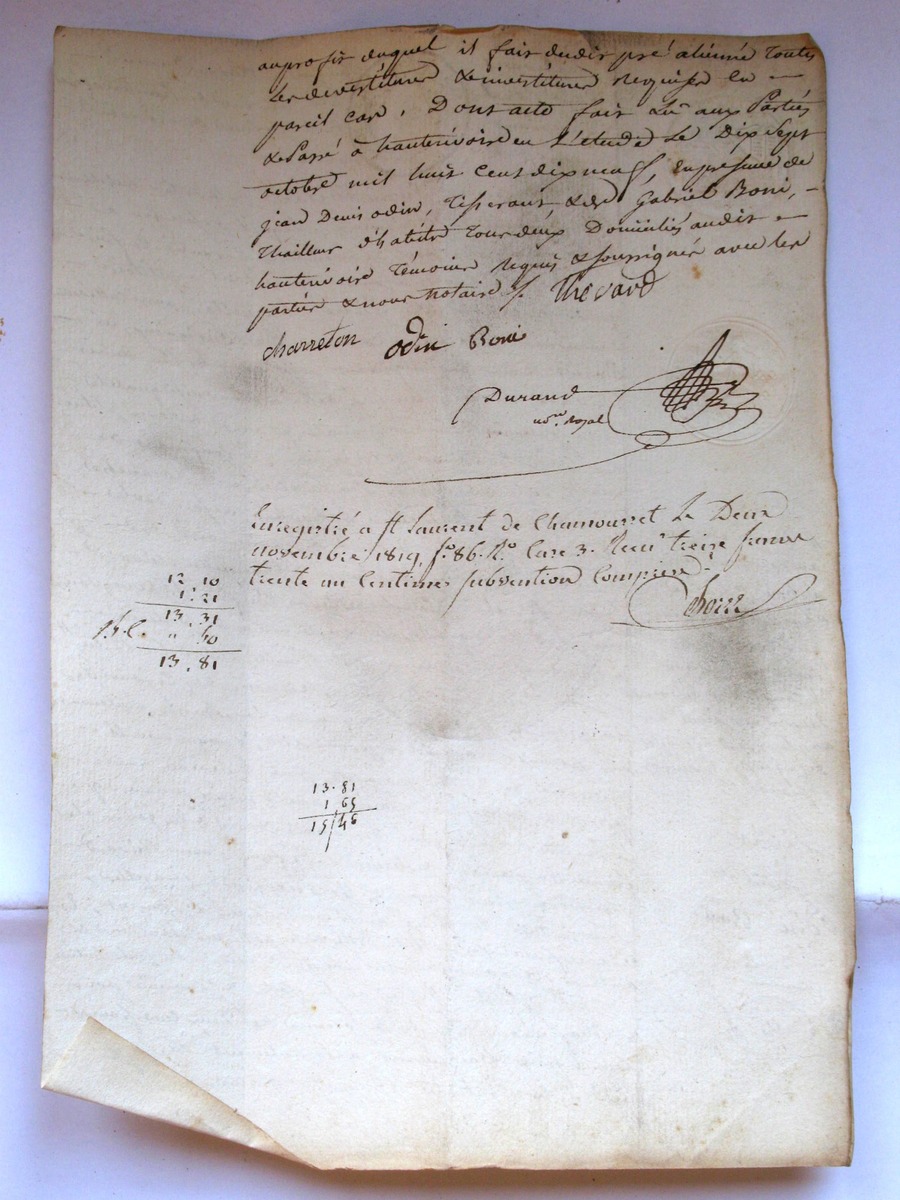 au profit duquel il fait dudit pré aliéné toutes
les devestitures & investitures requises en
pareil cas, Dont acte fait Lû aux Parties
& Passé à hauterivoire en L'étude Le Dix Sept
octobre mil huit Cent dix neuf, en presence de
jean Denis odin, Tisserant & de Gabriel Boni,
thailleur d'habits tous deux Domiciliés audit
hauterivoire témoins requis & soussignés avec les
parties & nous notaire /. Thevard
charreton odin Boni
Durand
no.re royal
Enregistré a st Laurent de Chamousset Le Deux
novembre 1819, f.o 86. R.o Case 3. Recu treize francs
trente un Centimes subvention Comprise
12 . 10
1. 21
13 . 31
" 50
13 . 81
13 . 81
1 65
15/46